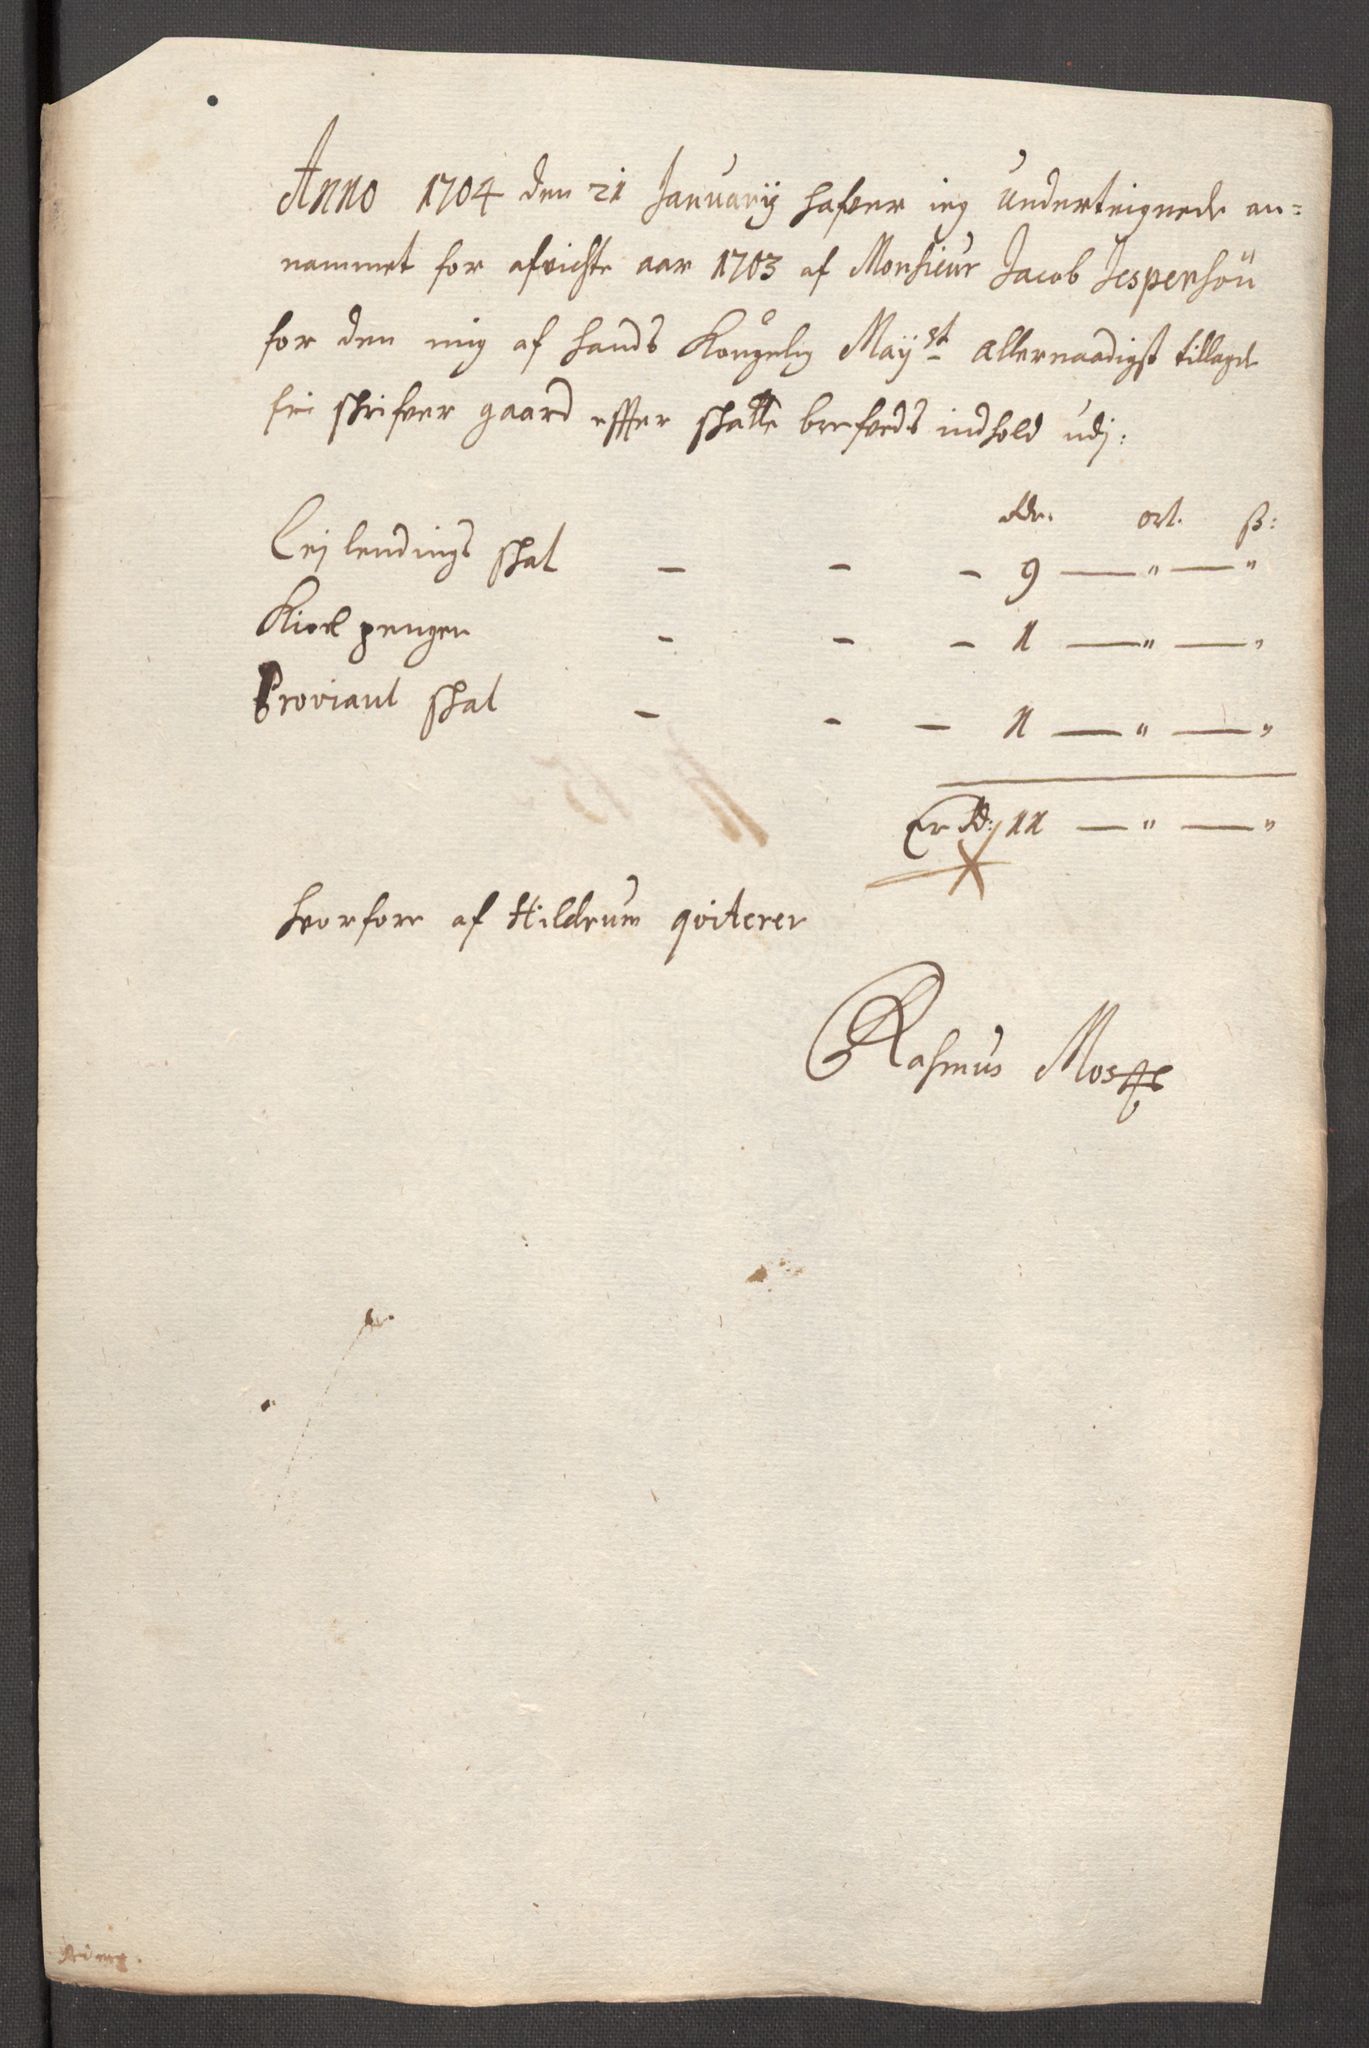 Anno 1704 den 21 Januarij hafver ieg underteignede an=
nammet for afvichte aar 1703 af Monsieur Jacob Jespersøn
for den mig af hands Kongelig Maÿst allernaadigst tillagde
fri schrifver gaard effter schatte brefveds indhold udj:
rdr. ort. ß:
Leilendings schat - - - 9 — " — "
Kiød penger - - - 1 — " — "
Proviant schat - - - 1 — " — "
Er Rd: 11 — " — "
hvorfore af Hildrum qviterer
Rasmus Moss